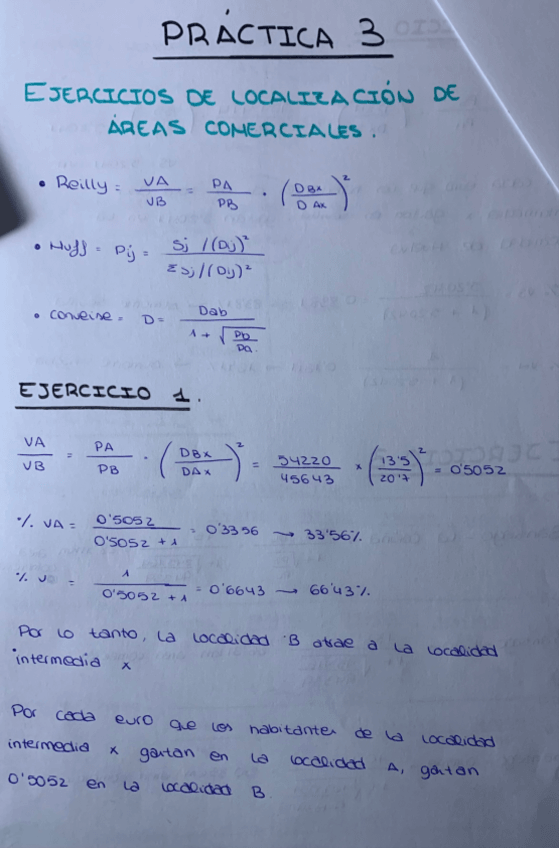 PRÁCTICA 3
EJERCICIOS DE LOCALIZACIÓN DE
ÁREAS COMERCIALES.
• Reilly = VA/VB = PA/PB · (DBx/DAx)²
• Huff = Pij = Sj/(Dij)² / Σ Sj/(Dij)²
• Converse = D = Dab / 1 + √(Pb/Pa)
EJERCICIO 1.
VA/VB = PA/PB · (DBx/DAx)² = 54220/45643 × (13'5/20'7)² = 0'5052
% VA = 0'5052 / 0'5052 + 1 = 0'3356 → 33'56%
% = 1 / 0'5052 + 1 = 0'6643 → 66'43%
Por lo tanto, la localidad B atrae a la localidad
intermedia x
Por cada euro que los habitantes de la localidad
intermedia x gastan en la localidad A, gastan
0'5052 en la localidad B